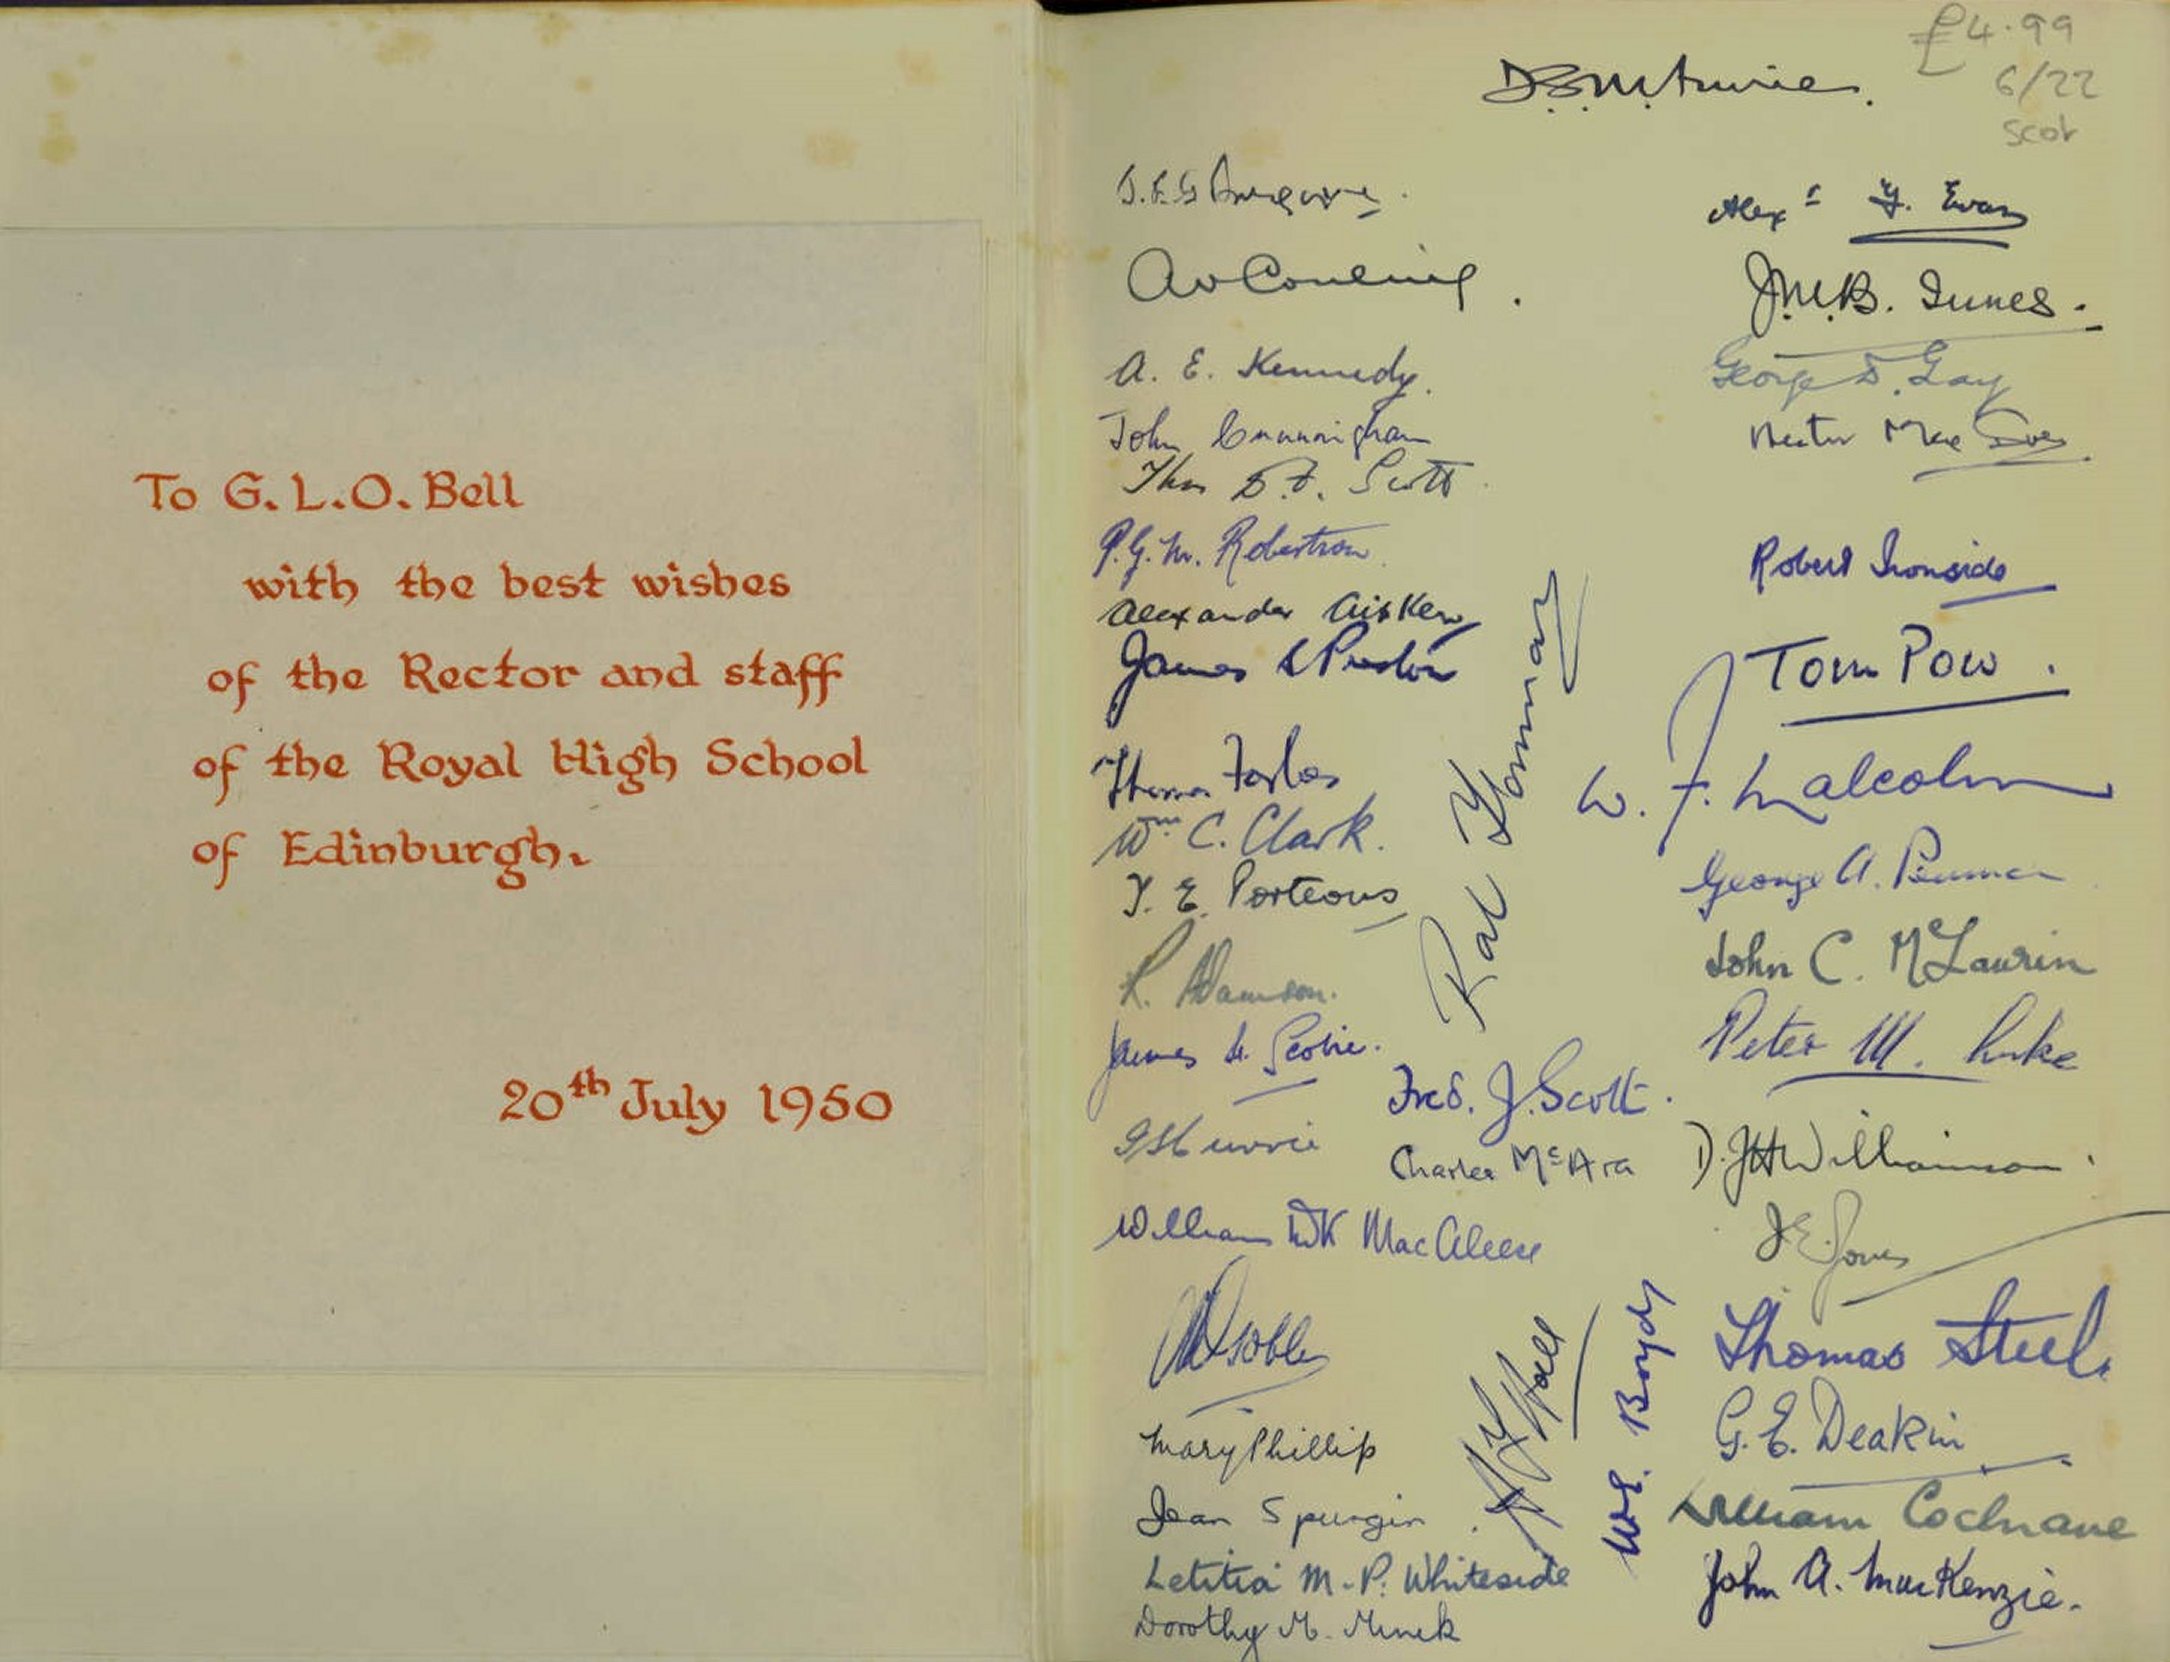 To G. L. O. Bell
with the best wishes
of the Rector and staff
of the Royal High School
of Edinburgh.
20th July 1950
£4.99
6/22
Scot
A. E. Kennedy.
John Cunningham
Thos Scott
P. G. M. Robertson
Alexander Aitken
James Preston
Thomas Forbes
Wm C. Clark.
T. E. Porteous
R. Adamson.
James Scobie.
William MacAleese
Mary Phillip
Jean Spurgin
Letitia M. P. Whiteside
Dorothy M. Minck
Pat Yorman
Fred. J. Scott.
Charles McAra
Hall
W. E. Boyd
Alexr Y. Evans
J.M.B. Innes.
George D. Gay
Hector Mac
Robert Ironside
Tom Pow.
W. F. Malcolm
George A. Penman
John C. McLaurin
Peter M. Luke
D. J. H. Williamson.
J E. Jones
Thomas Steel.
G. E. Deakin
William Cochrane
John A. MacKenzie.